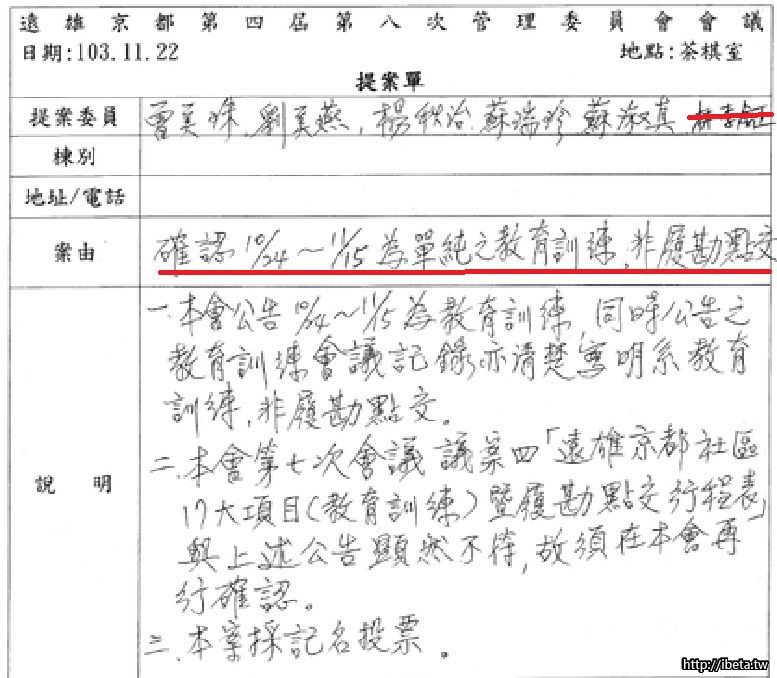 遠雄京都第四屆第八次管理委員會會議
日期:103.11.22 地點:茶棋室
提案單
提案委員 曾美珠、劉美燕、楊秋治、蘇瑞珍、蘇淑真
棟別
地址/電話
案由 確認10/24～11/15為單純之教育訓練，非履勘點交
說明
一、本會公告10/24～11/15為教育訓練，同時公告之
教育訓練會議記錄亦清楚寫明系教育
訓練，非履勘點交。
二、本會第七次會議議案四「遠雄京都社區
17大項目(教育訓練)暨履勘點交行程表」
與上述公告顯然不符，故須在本會再
行確認。
三、本案採記名投票。
http://ibeta.tw